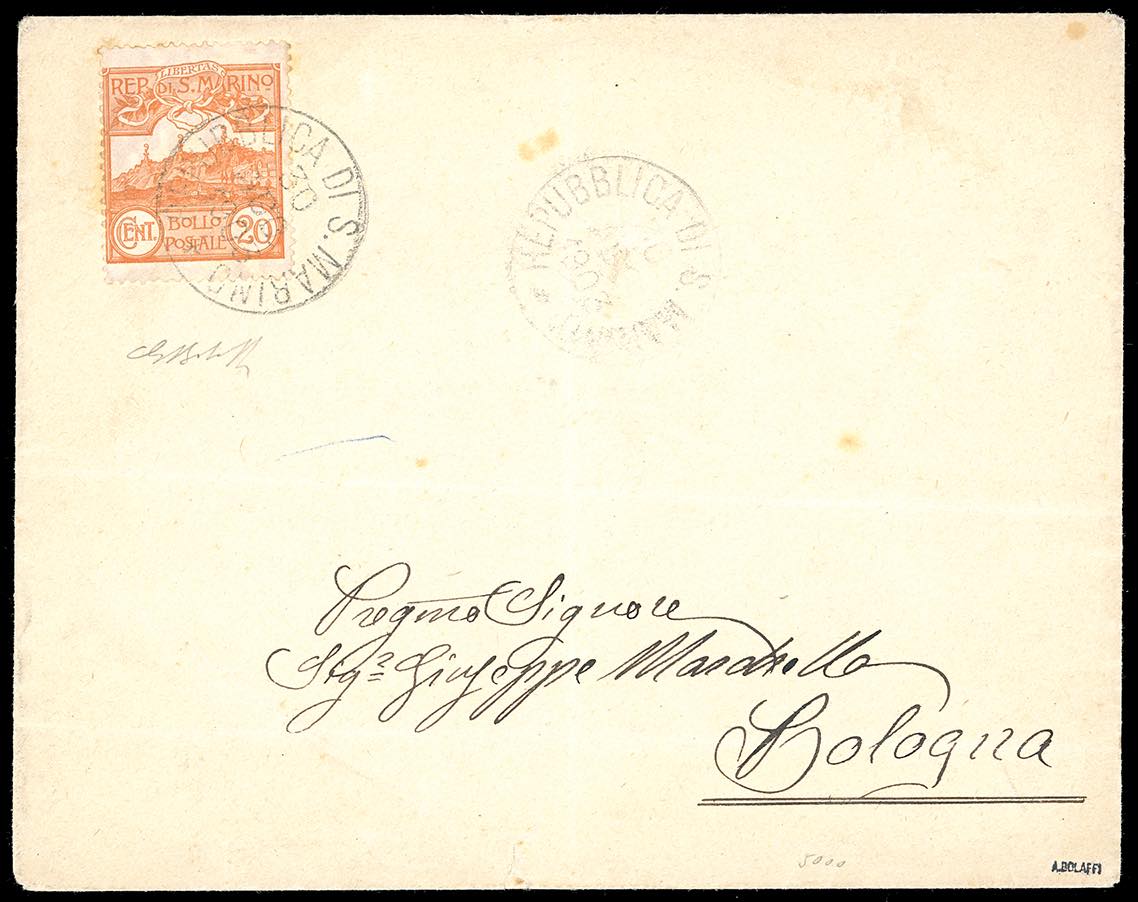 LIBERTAS
REP. DI S. MARINO
CENT. BOLLO POSTALE 20
REPUBBLICA DI S. MARINO
30
REPUBBLICA DI S. MARINO
Pregmo Signore
Sigr Giuseppe
Bologna
5000
A.BOLAFFI